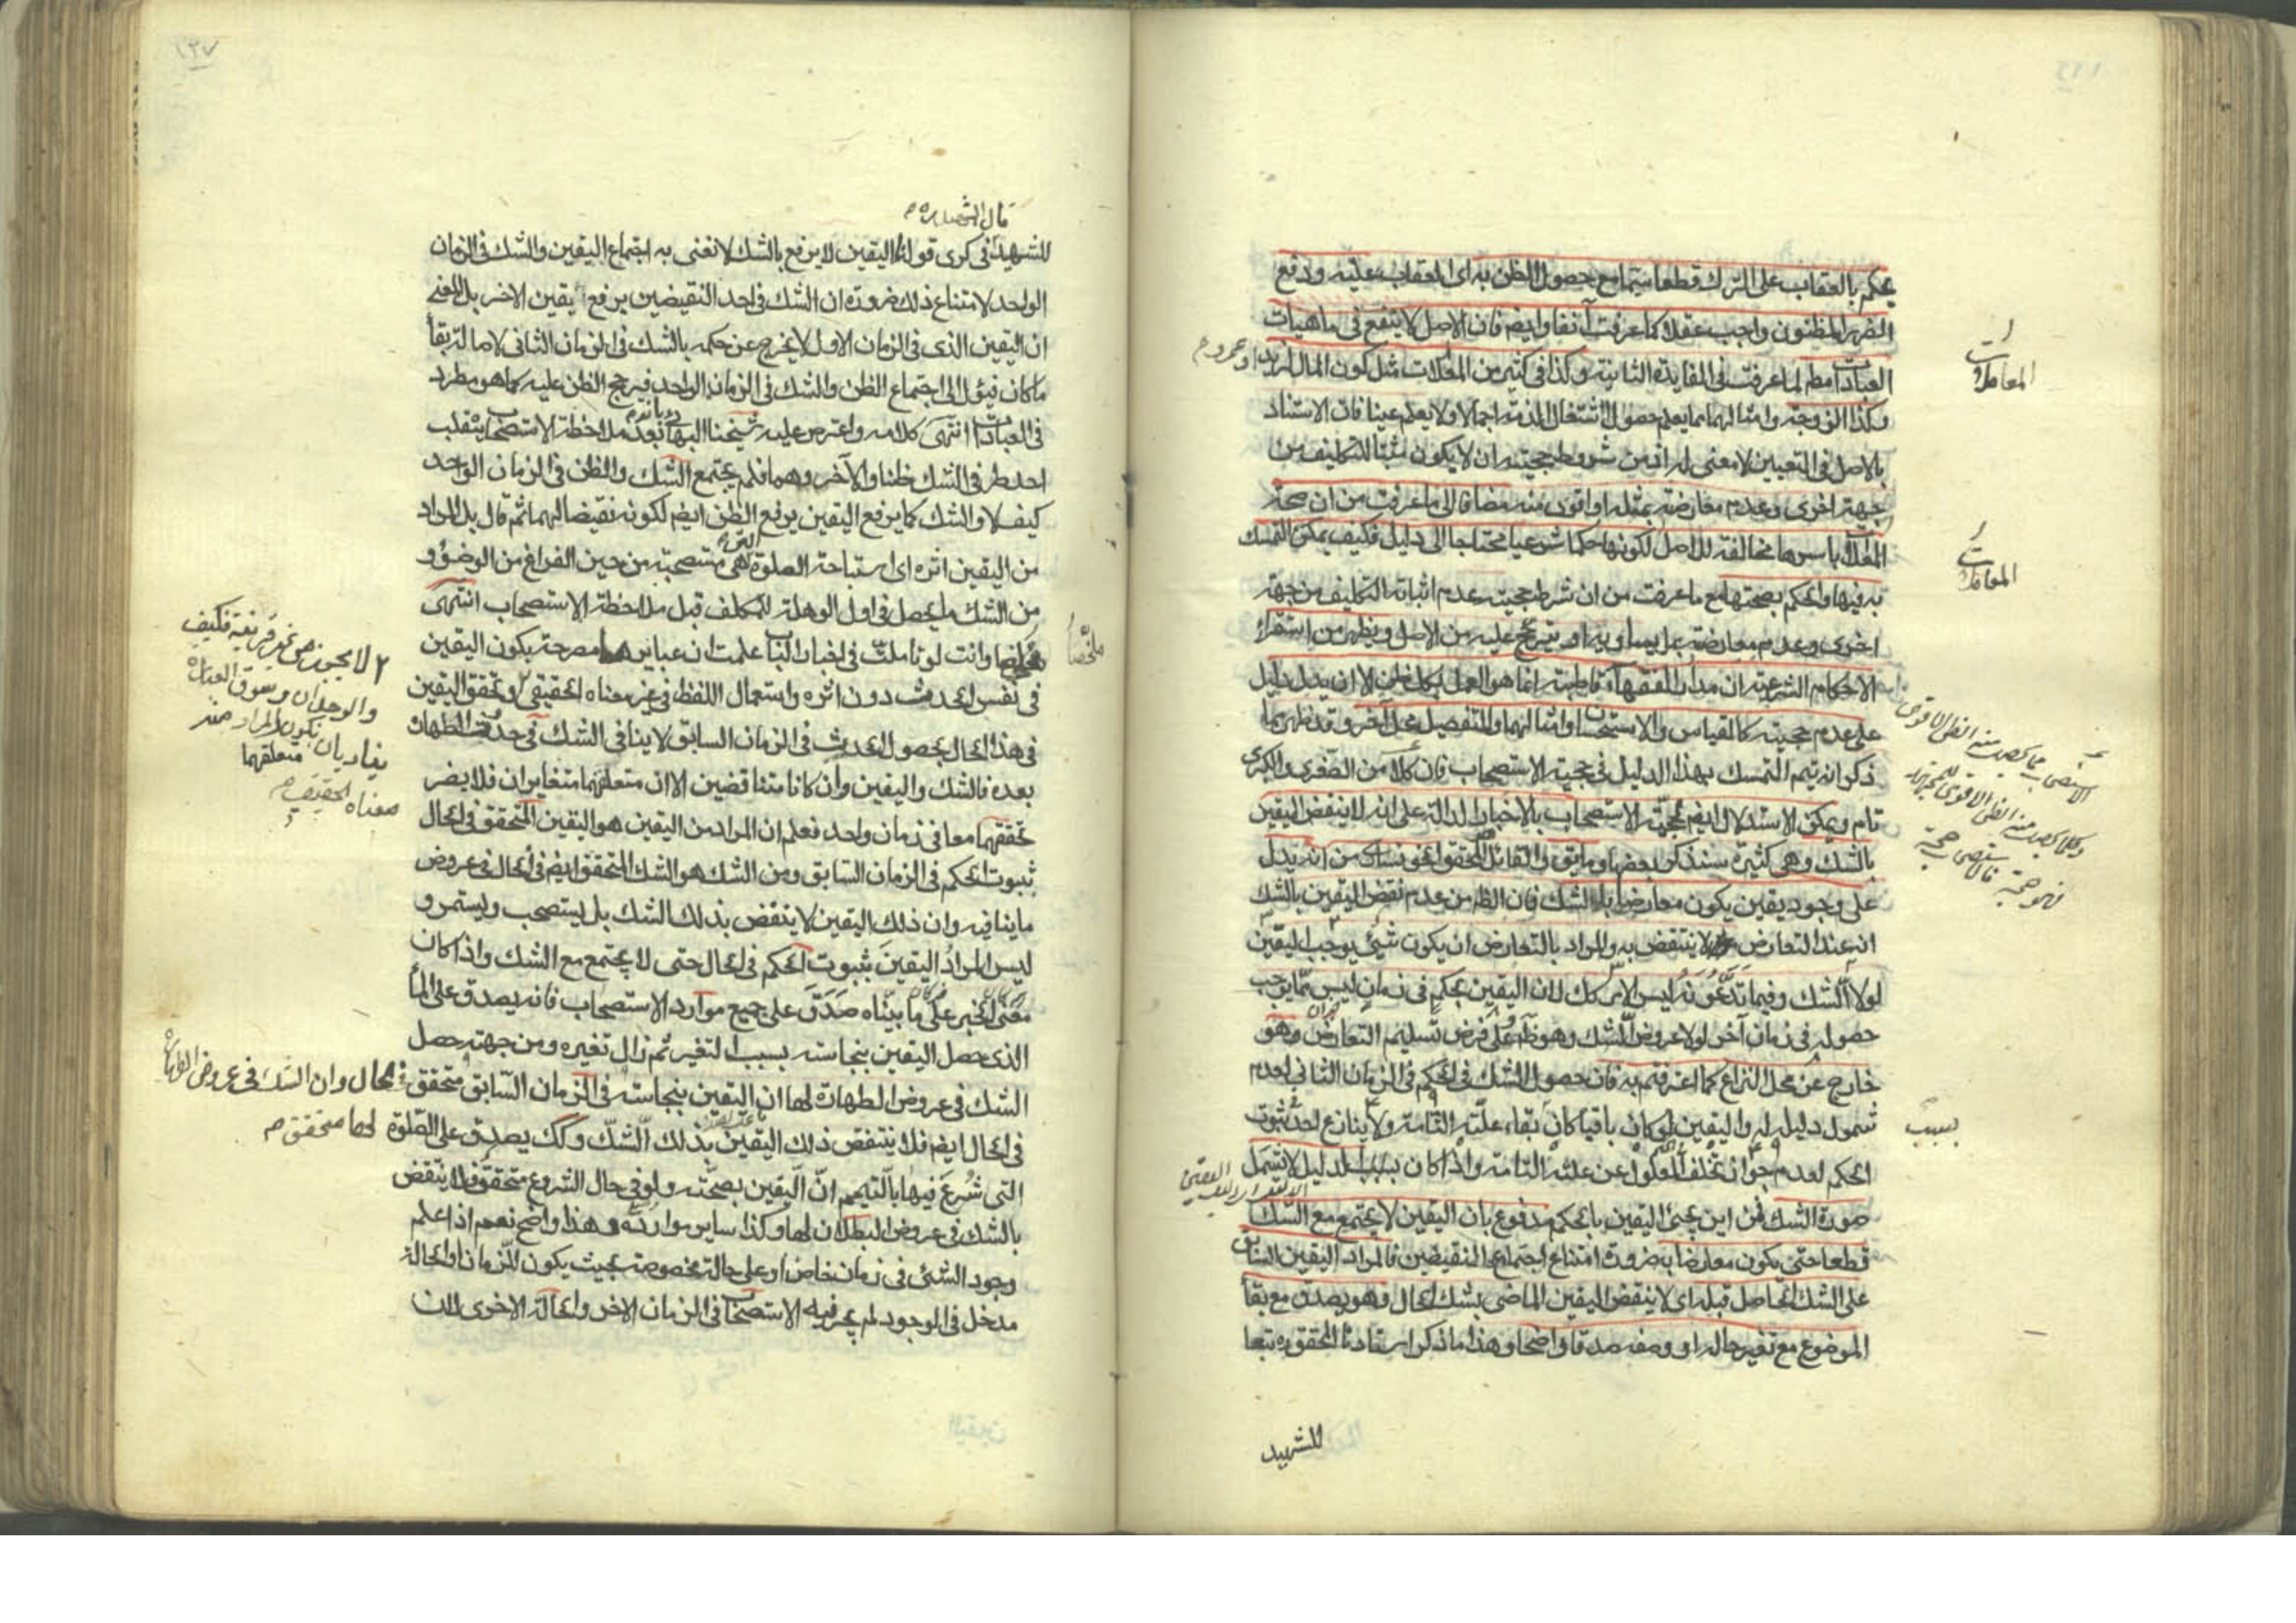 يحكم بالعقاب على الترك قطعا سيما مع حصول الظن به اى العقاب عليه ودفع
الضرر المظنون واجب عقلا كما عرفت آنفا وايضم فان الاصل لا ينفع فى ماهيات
العبادات مطم لما عرفت فى الفايدة الثانية وكذا فى كثير من المعاملات مثل كون المال لزيد او عمرو م
المعاملات
وكذا الزوجة وامثالهما مما يعلم حصول اشتغال الذمة اجمالا ولا يعلم عينا فان الاستناد
بالاصل فى التعيين لا معنى له اذ من شروط حجيته ان لا يكون مثبتا للتكليف من
جهة اخرى وعدم معارضته بمثله او اقوى منه مضافا الى ما عرفت من ان صحة
المعاملات باسرها مخالفة للاصل لكونها حكما شرعيا محتاجا الى دليل فكيف يمكن التمسك
المعاملات
به فيها والحكم بصحتها مع ما عرفت من ان شرط حجيته عدم اثباته التكليف من جهة
اخرى وعدم معارضته بما يساويه او يترجح عليه من الاصل ويظهر من استقراء
الاحكام الشرعية ان مدار الفقهاء قاطبة انما هو العمل بكل ظن الا ان يدل دليل
على عدم حجيته كالقياس والاستحسان وامثالهما والتفصيل محل آخر وقد ظهر مما
ذكر انه يتم التمسك بهذا الدليل فى حجية الاستصحاب فان كلا من الصغرى والكبرى
تام ويمكن الاستدلال ايضم بحجية الاستصحاب بالاخبار الدالة على انه لا ينقض اليقين
بالشك وهى كثيرة سنذكر بعضها وما يق والقائل المحقق الخونسارى من انه يدل
على وجود يقين يكون معارضا بالشك فان الظ من عدم نقض اليقين بالشك
انه عند التعارض لا ينتقض به والمراد بالتعارض ان يكون شيئ يوجب اليقين
لولا الشك وفيما تدعونه ليس الامر كك لان اليقين بحكم فى زمان ليس مما يوجب
حصوله فى زمان آخر لولا عروض الشك وهو ظ وعلى فرض تسليم التعارض وهو
خارج عن محل النزاع كما اعترفتم به فان حصول الشك فى الحكم فى الزمان الثانى لعدم
شمول دليله له واليقين لو كان باقيا كان بقاء علته التامة ولا ينازع احد ثبوت
بسبب
الحكم لعدم جواز تخلف المعلول عن علته التامة واذا كان بسبب الدليل لا يشمل
صورة الشك فمن اين يجيئ اليقين بالحكم مدفوع بان اليقين لا يجتمع مع الشك
قطعا حتى يكون معارضا به ضرورة امتناع اجتماع النقيضين فالمراد اليقين السابق
على الشك الحاصل قبله اى لا ينقض اليقين الماضى بشك الحال وهو يصدق مع بقاء
الموضوع مع تغير حاله او وصفه صدقا واضحا وهذا ما ذكر استادنا المحقق ره تبعا
للشهيد
١٣٧
قال الشهيد ره م
للشهيد فى كرى قولنا اليقين لا يرفع بالشك لا نعنى به اجتماع اليقين والشك فى الزمان
الواحد لامتناع ذلك ضرورة ان الشك فى احد النقيضين يرفع يقين الاخر بل المعنى
ان اليقين الذى فى الزمان الاول لا يخرج عن حكمه بالشك فى الزمان الثانى لاصالة بقاء
ما كان فيؤل الى اجتماع الظن والشك فى الزمان الواحد فيرجح الظن عليه كما هو مطرد
فى العبادات انتهى كلامه واعترض عليه شيخنا البهائى بانه بعد ملاحظة الاستصحاب ينقلب
احد طرفى الشك ظنا والآخر وهما فلم يجتمع الشك والظن فى الزمان الواحد
كيف لا والشك كما يرفع اليقين يرفع الظن ايضم لكونه نقيضا لهما ثم قال بل المراد
من اليقين اثره اى استباحة الصلوة التى هى مستصحبة من حين الفراغ من الوضوء و
من الشك ما يحصل فى اول الوهلة للمكلف قبل ملاحظة الاستصحاب انتهى
ملخصا وانت لو تاملت فى اخبار الباب علمت ان عباير مصرحة بكون اليقين
فى نفس الحدث دون اثره واستعمال اللفظ فى غير معناه الحقيقى ٢ وتحقق اليقين
٢ لا يجوز من غير قرينة فكيف
فى هذا الحال بحصول الحدث فى الزمان السابق لا ينافى الشك فى حدوث الطهارة
بعده فالشك واليقين وان كانا متناقضين الا ان متعلقهما متغايران فلا يضر
متعلقهما
تحققهما معا فى زمان واحد فعلم ان المراد من اليقين هو اليقين المتحقق فى الحال
معناه الحقيقى م
ثبوت الحكم فى الزمان السابق ومن الشك هو الشك المتحقق ايضم فى الحال فى عروض
ما ينافيه وان ذلك اليقين لا ينتقض بذلك الشك بل يستصحب ويستمر و
ليس المراد اليقين بثبوت الحكم فى الحال حتى لا يجتمع مع الشك واذا كان
معنى الخبر على ما بيناه صدق على جميع موارد الاستصحاب فانه يصدق على الماء
الذى حصل اليقين بنجاسته بسبب التغير ثم زال تغيره ومن جهته حصل
الشك فى عروض الطهارة لها ان اليقين بنجاسته فى الزمان السابق متحقق فى الحال وان الشك فى عروض الطهارة
فى الحال ايضم فلا ينتقض ذلك اليقين بذلك الشك وكك يصدق على الصلوة لها متحقق م
التى شرع فيها بالتيمم ان اليقين بصحته ولو فى حال الشروع متحقق فلا ينتقض
بالشك فى عروض البطلان لها وكذا ساير موارده وهذا واضح نعم اذا علم
وجود الشئ فى زمان خاص او على حالة مخصوصة بحيث يكون للزمان او الحالة
مدخل فى الوجود لم يجر فيه الاستصحاب فى الزمان الاخر والحالة الاخرى لان